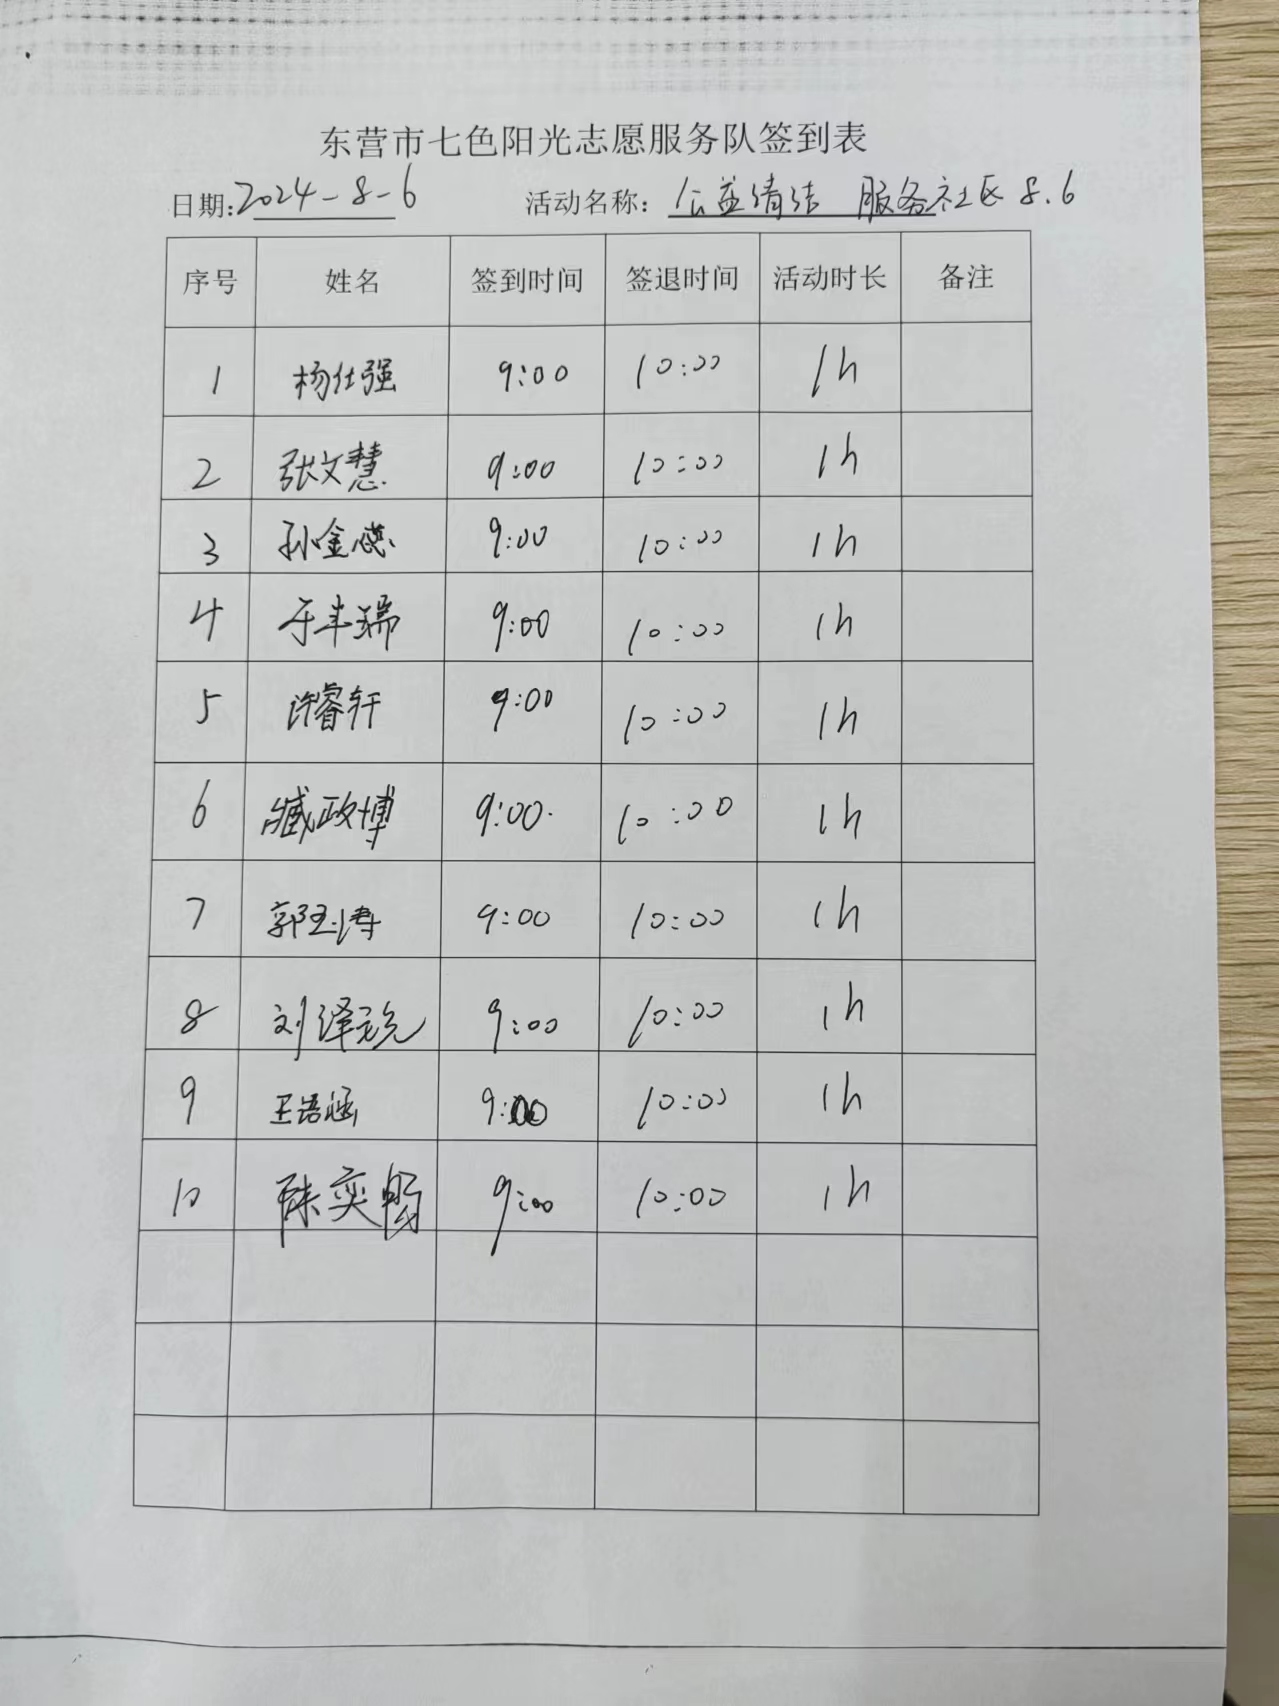 东营市七色阳光志愿服务队签到表
日期:2024-8-6 活动名称: 公益清洁 服务社区 8.6
序号 姓名 签到时间 签退时间 活动时长 备注
1 杨仕强 9:00 10:00 1h
2 张文慧 9:00 10:00 1h
3 孙金蕊 9:00 10:00 1h
4 于丰瑞 9:00 10:00 1h
5 许睿轩 9:00 10:00 1h
6 臧政博 9:00 10:00 1h
7 郭玉涛 9:00 10:00 1h
8 刘泽 9:00 10:00 1h
9 王语涵 9:00 10:00 1h
10 陈奕畅 9:00 10:00 1h